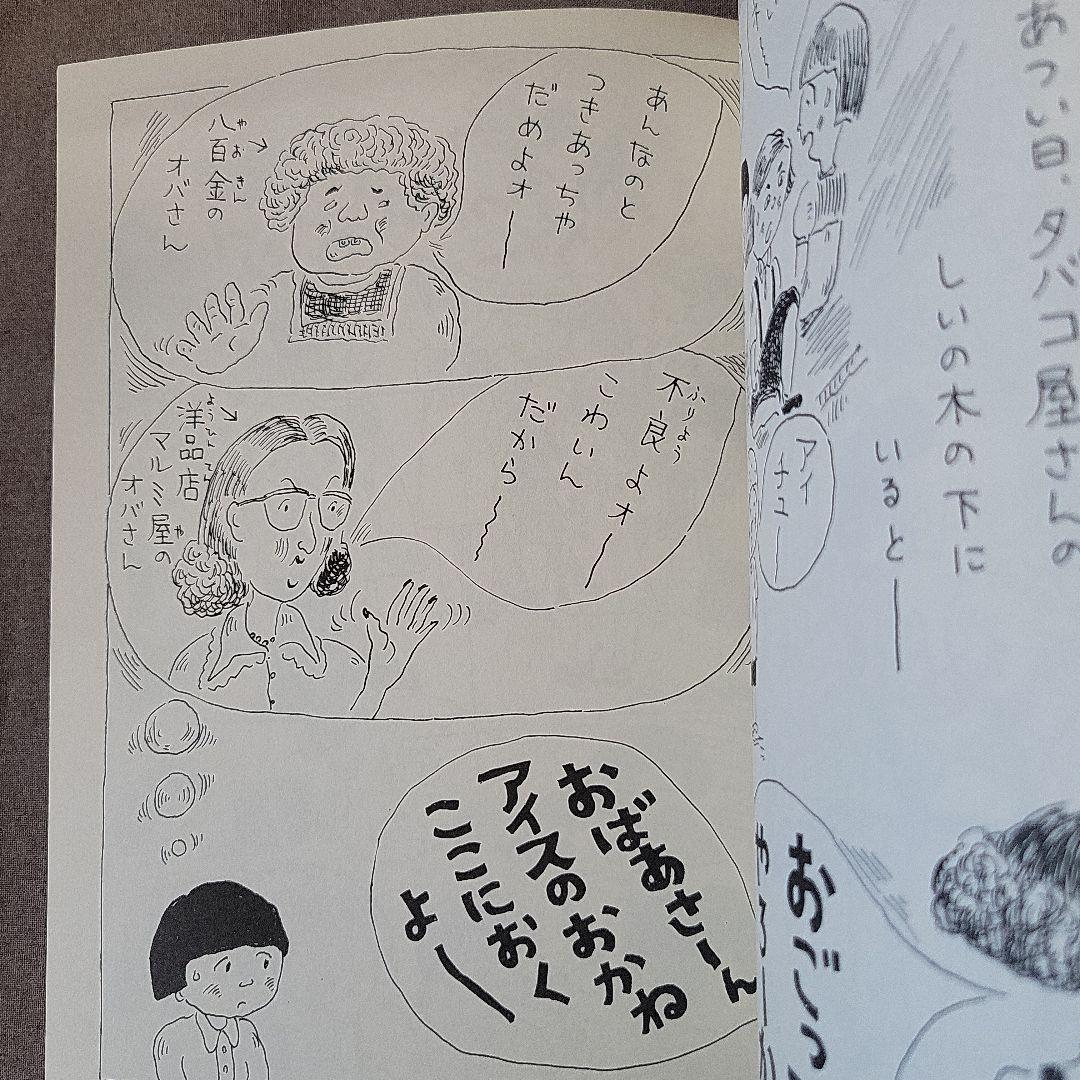 あつい日、タバコ屋さんの
しいの木の下に
いるとー
アイ
あんなのと
つきあっちゃ
だめよォー
八百金の
やおきん
オバさん
不良よォー
ふりょう
こわいん
だから〜
洋品店
ようひんてん
マルミ屋の
や
オバさん
おばあさーん
アイスのおかね
ここにおく
よー